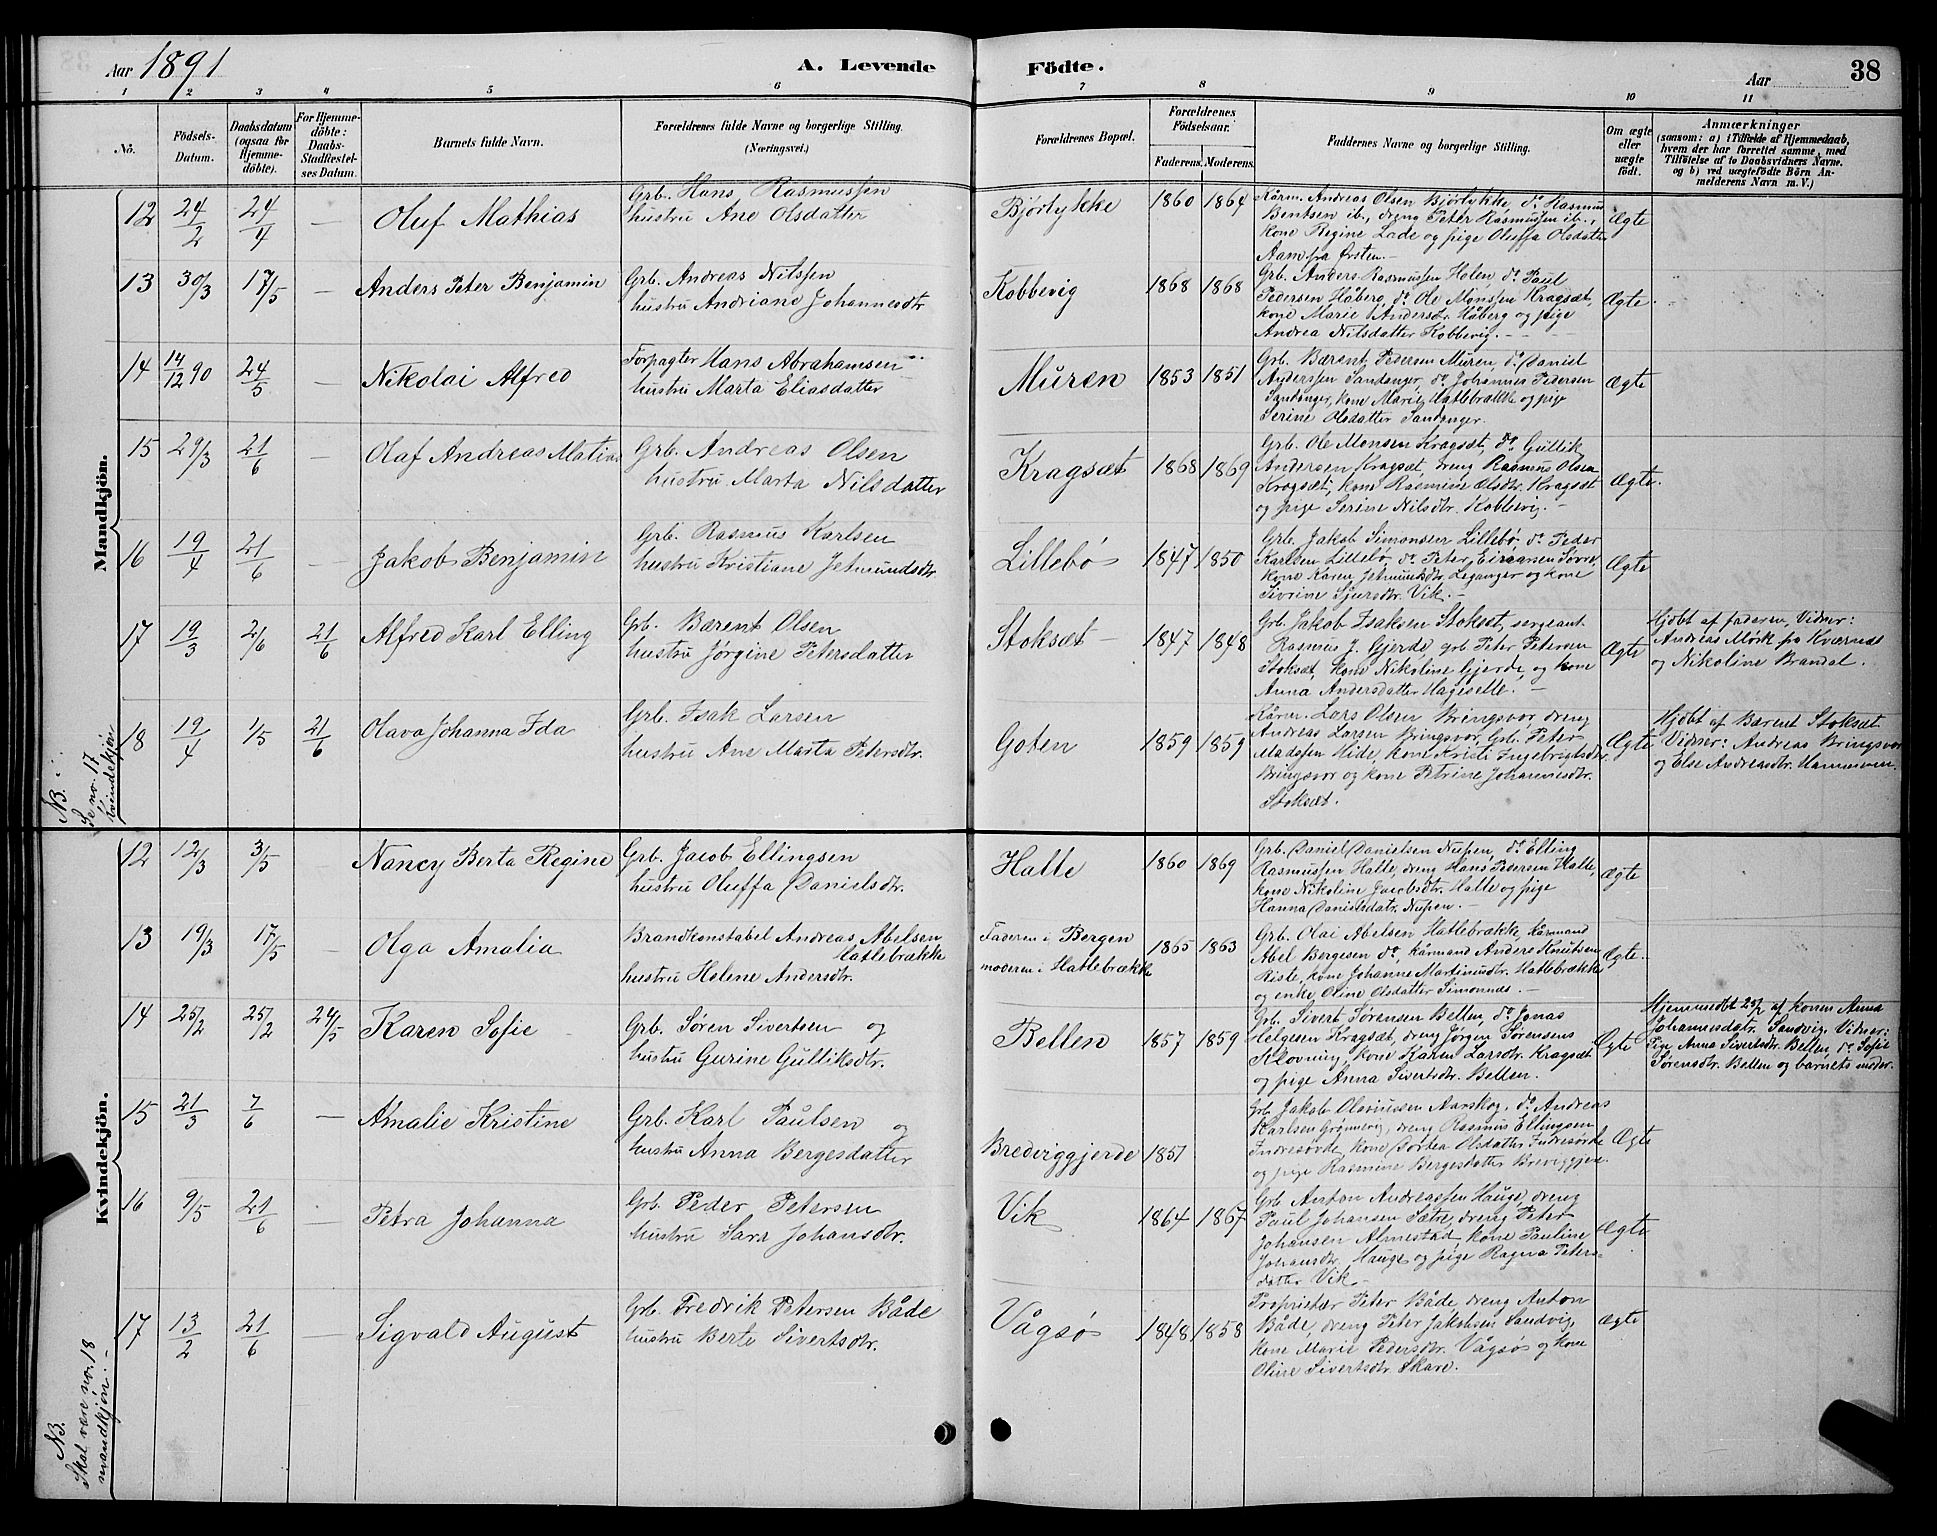 Aar 1891
A. Levende
Födte.
Aar
38
1 2 3 4 5 6 7 8 9 10 11
No.
Födsels-
Datum.
Daabsdatum
(ogsaa for
Hjemme-
döbte).
For Hjemme-
döbte:
Daabs-
Stadfæstel-
ses Datum.
Barnets fulde Navn.
Forældrenes fulde Navne og borgerlige Stilling.
(Næringsvei.)
Forældrenes Bopæl.
Forældrenes
Födselsaar.
Faderens. Moderens.
Faddernes Navne og borgerlige Stilling.
Om ægte
eller
uægte
födt.
Anmærkninger
(saasom: a) i Tilfælde af Hjemmedaab,
hvem der har forrettet samme, med
Tilföielse af to Daabsvidners Navne.
og b) ved uægtefödte Börn An-
melderens Navn m. V.)
Mandkjön.
12 24/2 24/4 — Oluf Mathias
Grb. Hans Rasmussen
hustru Ane Olsdatter
Bjørlykke 1860 1864
Kårm. Andreas Olsen Bjørlykke, do Rasmus
Bentsen ib., dreng Peter Rasmussen ib.,
kone Regine Lade og pige Oluffa Olsdatter
Aam fra Ørsten. —
Ægte
13 30/3 17/5 — Anders Peter Benjamin
Grb. Andreas Nilssen
hustru Andriane Johannesdtr
Kobbevig 1868 1868
Grb. Anders Rasmussen Holen, do Paul
Pedersen Håberg, do Ole Monssen Kragsæt,
kone Marie Andersdtr. Håberg og pige
Andrea Nilsdatter Kobbevig. —
Ægte
14 14/12 90 24/5 — Nikolai Alfred
Forpagter Hans Abrahamsen
hustru Marta Eliasdatter
Muren 1853 1851
Grb. Bærent Pedersen Muren, do Daniel
Anderssen Sandanger, do Johannes Pedersen
Sandanger, kone Marie Hatlebrække og pige
Serine Olsdatter Sandanger.
Ægte
15 29/3 21/6 — Olaf Andreas Matias
Grb. Andreas Olsen
hustru Marta Nilsdatter
Kragsæt 1868 1869
Grb. Ole Monsen Kragsæt, do Gullik
Andersen Kragsæt, dreng Rasmus Olsen
Kragsæt, kone Rasmine Olsdtr. Kragsæt
og pige Serine Nilsdtr. Kobbevig. —
Ægte.
16 19/4 21/6 — Jakob Benjamin
Grb. Rasmus Karlsen
hustru Kristiane Jetmundsdtr
Lillebø 1847 1850
Grb. Jakob Simonsen Lillebø do Peder
Karlsen Lillebø, do Peter
kone Karen Jetmundsdtr. Leganger og kone
Sivrine Sjursdtr. Vik. —
Ægte
17 19/3 2/6 21/6 Alfred Karl Elling
Grb. Bærent Olsen
hustru Jørgine Petersdatter
Stoksæt — 1847 1848
Grb. Jakob Isaksen Stokset, sergeant
Rasmus J. Gjerde grb Peter Petersen
Stoksæt, kone Nikoline Gjerde, og kone
Anna Andersdatter Hageselle. —
Ægte
Hjdbt af faderen, Vidner:
Andreas Mörk fra Kværnes
og Nikoline Brandal.
18 19/4 1/5 21/6 Olava Johanna Ida
Grb. Isak Larsen
hustru Ane Marta Petersdtr.
Goten 1859 1859
Kårm. Lars Olsen Bringsvor, dreng
Andreas Larsen Bringsvor, Grb. Peter
Madssen Hide, kone Kristi Ingebrigtsdtr.
Bringsvor og kone Petrine Johannesdtr.
Stoksæt.
Ægte
Hjdbt af Bærent Stoksæt
Vidner: Andreas Bringsvor
og Else Andreasdtr.
NB.:
Se no. 17
kvindekjön
Kvindekjön.
12 12/3 3/5 — Nancy Berta Regine
Grb. Jacob Ellingsen
hustru Oluffa Danielsdtr.
Halle 1860 1869
Grb. Daniel Danielsen Nupen, do Elling
Rasmussen Halle, dreng Hans Pedersen Halle,
kone Nikoline Jacobsdtr. Halle og pige
Hanna Danielsdatr. Nupen. —
Ægte
13 19/3 17/5 — Olga Amalia
Brandkonstabel Andreas Abelsen
Hatlebrække
hustru Helene Andersdtr.
Faderen i Bergen
moderen i Hatlebrække
1865 1863
Grb. Olai Abelsen Hatlebrække, kårmand
Abel Bergesen do, kårmand Anders Knutsen
Riste, kone Johanne Martinusdtr. Hatlebrække
og enke Oline Olsdatter Simonnes. —
Ægte.
14 25/2 25/2 24/5 Karen Sofie
Grb. Søren Sivertsen og
hustru Gurine Gulliksdtr.
Belten 1857 1859
Grb. Sivert Sørensen Belten, do Jonas
Helgesen Kragsæt, dreng Jørgen Sørensens
Klovning, kone Karen Larsdtr. Kragsæt
og pige Anna Sivertsdtr. Belten.
Ægte
Hjemmedbt 25/2 af konen Anna
Johannesdtr. Sandvig. Vidner:
Pig. Anna Sivertsdtr. Belten, do Sofie
Sørensdtr. Belten og barnets moder.
15 21/3 7/6 — Amalie Kristine
Grb. Karl Paulsen og
hustru Anna Bergesdatter
Bredviggjerde 1851
Grb. Jakob Aarskog, do Andreas
Karlsen Grønnevig, dreng Rasmus Ellingsen
Indresørde, kone Dortea Olsdatter Indresørde
og pige Rasmine Bergesdatter
Ægte
16 9/5 21/6 — Petra Johanna
Grb. Peder Petersen
hustru Sara Johansdtr.
Vik 1864 1867
Grb. Anton Andreassen Hauge, dreng
Paul Johansen Sætre, dreng Peter
Johansen Almestad, kone Pauline
Johansdtr. Hauge og pige Ragna Peters-
datter Vik —
Ægte
17 13/2 21/6 — Sigvald August
Grb. Fredrik Petersen Både
hustru Berte Sivertsdtr.
Vågsø 1848 1858
Proprietær Peter Både, dreng Anton
Både, dreng Peter Jakobsen Sandvig
kone Marie Pedersdtr. Vågsø og kone
Oline Sivertsdtr Skare.
Ægte
NB.
Skal være no. 18
mandkjön. —